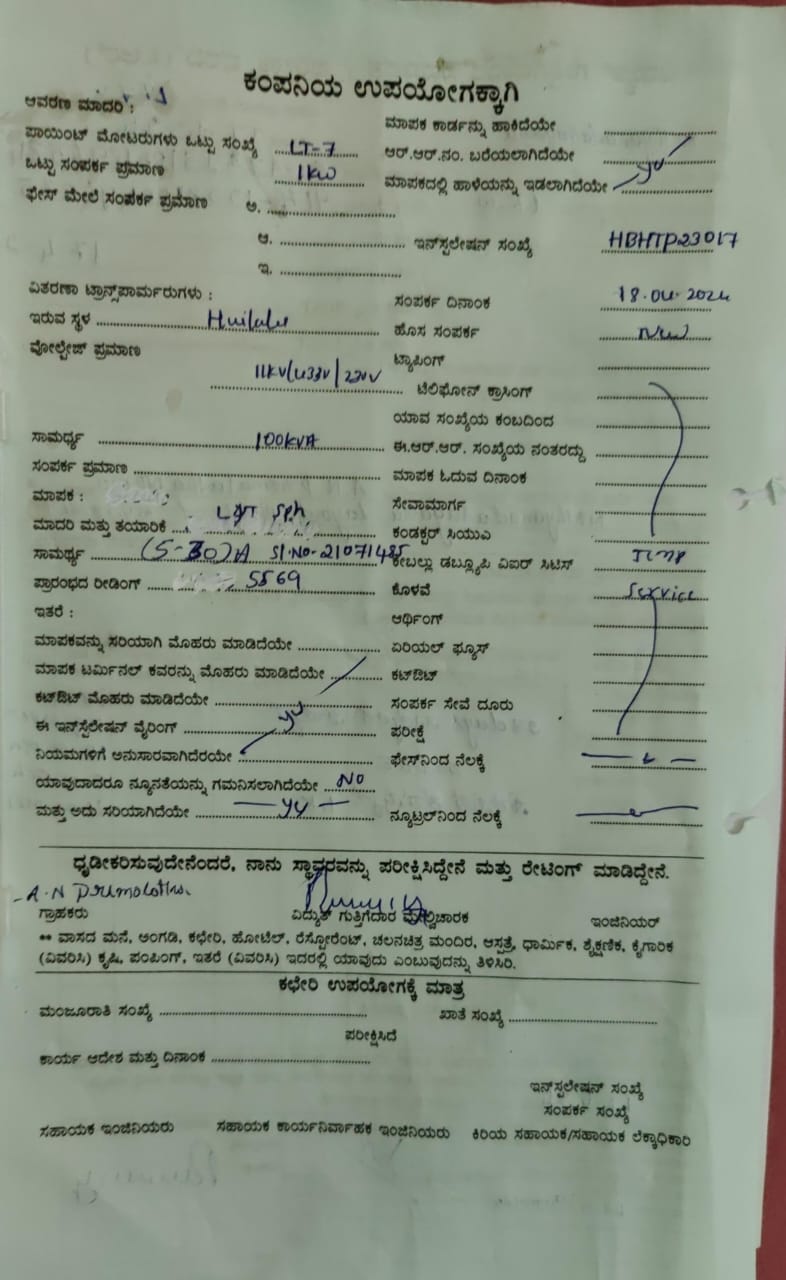 ಕಂಪನಿಯ ಉಪಯೋಗಕ್ಕಾಗಿ
ಆವರಣ ಮಾದರಿ :
ಮಾಪಕ ಕಾರ್ಡನ್ನು ಹಾಕಿದೆಯೇ
ಪಾಯಿಂಟ್ ಮೋಟರುಗಳು ಒಟ್ಟು ಸಂಖ್ಯೆ LT-7
ಆರ್.ಆರ್.ನಂ. ಬರೆಯಲಾಗಿದೆಯೇ
ಒಟ್ಟು ಸಂಪರ್ಕ ಪ್ರಮಾಣ 1kw
ಮಾಪಕದಲ್ಲಿ ಹಾಳೆಯನ್ನು ಇಡಲಾಗಿದೆಯೇ
ಫೇಸ್ ಮೇಲೆ ಸಂಪರ್ಕ ಪ್ರಮಾಣ ಅ.
ಆ. ಇನ್‌ಸ್ಟಲೇಷನ್ ಸಂಖ್ಯೆ HBHTP23017
ಇ.
ವಿತರಣಾ ಟ್ರಾನ್ಸ್‌ಪಾರ್ಮರುಗಳು :
ಸಂಪರ್ಕ ದಿನಾಂಕ 18.04.2024
ಇರುವ ಸ್ಥಳ
ಹೊಸ ಸಂಪರ್ಕ New
ವೋಲ್ಟೇಜ್ ಪ್ರಮಾಣ 11KV/433V/230V
ಟ್ಯಾಪಿಂಗ್
ಟೆಲಿಫೋನ್ ಕ್ರಾಸಿಂಗ್
ಯಾವ ಸಂಖ್ಯೆಯ ಕಂಬದಿಂದ
ಸಾಮರ್ಥ್ಯ 100KVA
ಈ.ಆರ್.ಆರ್. ಸಂಖ್ಯೆಯ ನಂತರದ್ದು
ಸಂಪರ್ಕ ಪ್ರಮಾಣ
ಮಾಪಕ ಓದುವ ದಿನಾಂಕ
ಮಾಪಕ :
ಸೇವಾಮಾರ್ಗ
ಮಾದರಿ ಮತ್ತು ತಯಾರಿಕೆ L&T Sph
ಕಂಡಕ್ಟರ್ ಸಿಯುವಿ
ಸಾಮರ್ಥ್ಯ (5-30)A Sl.No-21071485
ಕೇಬಲ್ಲು ಡಬ್ಲ್ಯೂಪಿ ವಿಐರ್ ಸಿಟಿಸ್ Temp
ಪ್ರಾರಂಭದ ರೀಡಿಂಗ್ 5569
ಕೊಳವೆ Service
ಇತರೆ :
ಆರ್ಥಿಂಗ್
ಮಾಪಕವನ್ನು ಸರಿಯಾಗಿ ಮೊಹರು ಮಾಡಿದೆಯೇ
ಏರಿಯಲ್ ಫ್ಯೂಸ್
ಮಾಪಕ ಟರ್ಮಿನಲ್ ಕವರನ್ನು ಮೊಹರು ಮಾಡಿದೆಯೇ
ಕಟ್‌ಔಟ್
ಕಟ್‌ಔಟ್ ಮೊಹರು ಮಾಡಿದೆಯೇ
ಸಂಪರ್ಕ ಸೇವೆ ದೂರು
ಈ ಇನ್‌ಸ್ಟಲೇಷನ್ ವೈರಿಂಗ್
ಪರೀಕ್ಷೆ
ನಿಯಮಗಳಿಗೆ ಅನುಸಾರವಾಗಿದೆರಯೇ
ಫೇಸ್‌ನಿಂದ ನೆಲಕ್ಕೆ
ಯಾವುದಾದರೂ ನ್ಯೂನತೆಯನ್ನು ಗಮನಿಸಲಾಗಿದೆಯೇ NO
ಮತ್ತು ಅದು ಸರಿಯಾಗಿದೆಯೇ
ನ್ಯೂಟ್ರಲ್‌ನಿಂದ ನೆಲಕ್ಕೆ
ಧೃಡೀಕರಿಸುವುದೇನೆಂದರೆ, ನಾನು ಸ್ಥಾವರವನ್ನು ಪರೀಕ್ಷಿಸಿದ್ದೇನೆ ಮತ್ತು ರೇಟಿಂಗ್ ಮಾಡಿದ್ದೇನೆ.
A.N
ಗ್ರಾಹಕರು ವಿದ್ಯುತ್ ಗುತ್ತಿಗೆದಾರ ಮೇಲ್ವಿಚಾರಕ ಇಂಜಿನಿಯರ್
** ವಾಸದ ಮನೆ, ಅಂಗಡಿ, ಕಛೇರಿ, ಹೋಟೆಲ್, ರೆಸ್ಟೋರೆಂಟ್, ಚಲನಚಿತ್ರ ಮಂದಿರ, ಆಸ್ಪತ್ರೆ, ಧಾರ್ಮಿಕ, ಶೈಕ್ಷಣಿಕ, ಕೈಗಾರಿಕ
(ವಿವರಿಸಿ) ಕೃಷಿ, ಪಂಪಿಂಗ್, ಇತರೆ (ವಿವರಿಸಿ) ಇದರಲ್ಲಿ ಯಾವುದು ಎಂಬುವುದನ್ನು ತಿಳಿಸಿರಿ.
ಕಛೇರಿ ಉಪಯೋಗಕ್ಕೆ ಮಾತ್ರ
ಮಂಜೂರಾತಿ ಸಂಖ್ಯೆ ಖಾತೆ ಸಂಖ್ಯೆ
ಪರೀಕ್ಷಿಸಿದೆ
ಕಾರ್ಯ ಆದೇಶ ಮತ್ತು ದಿನಾಂಕ
ಇನ್‌ಸ್ಟಲೇಷನ್ ಸಂಖ್ಯೆ
ಸಂಪರ್ಕ ಸಂಖ್ಯೆ
ಸಹಾಯಕ ಇಂಜಿನಿಯರು ಸಹಾಯಕ ಕಾರ್ಯನಿರ್ವಾಹಕ ಇಂಜಿನಿಯರು ಕಿರಿಯ ಸಹಾಯಕ/ಸಹಾಯಕ ಲೆಕ್ಕಾಧಿಕಾರಿ